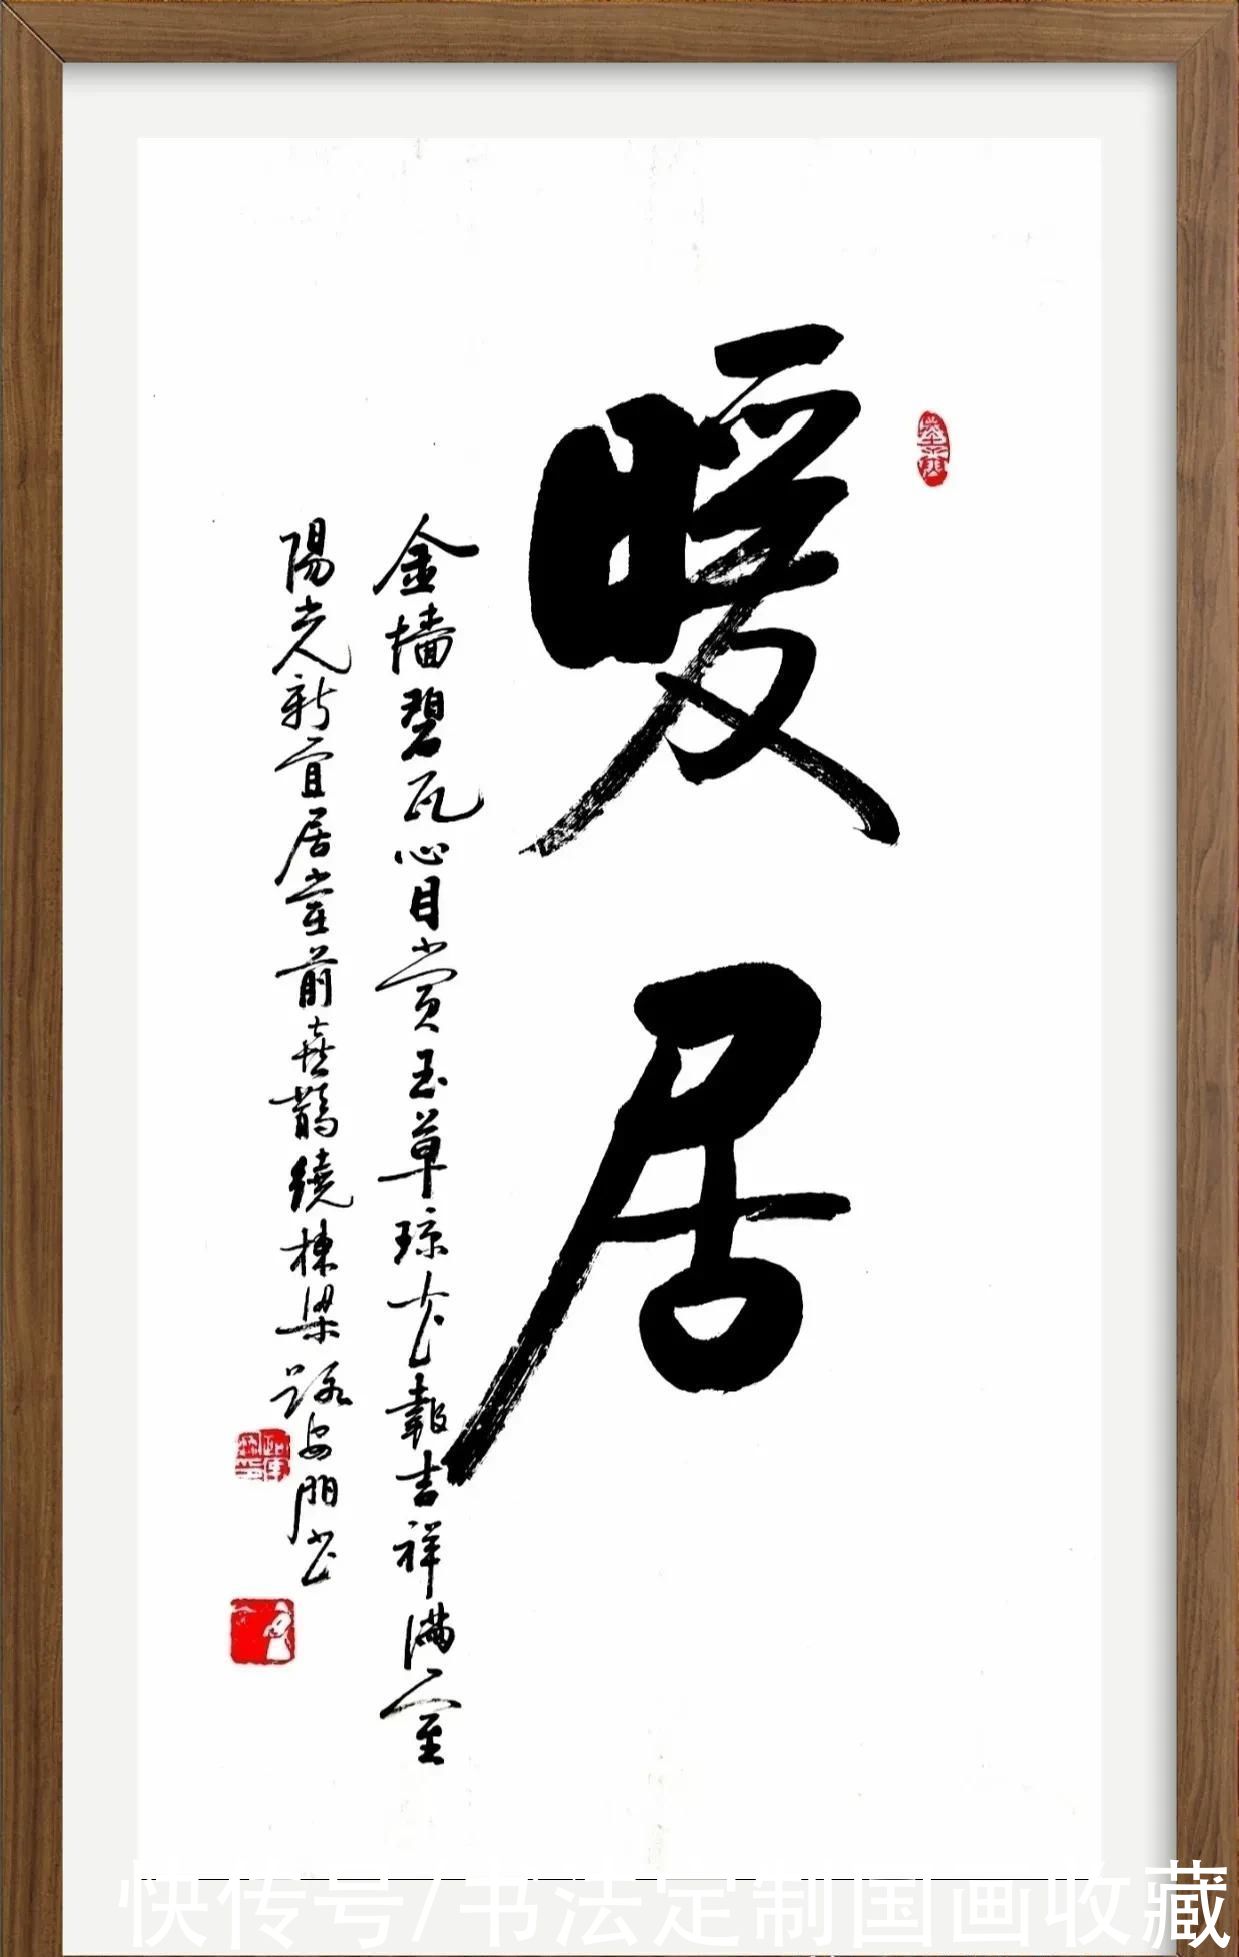 暖居
金墙碧瓦心目赏玉草琼花報吉祥满室
陽光新宜居堂前喜鵲繞棟梁路安門书
快传号/书法定制国画收藏